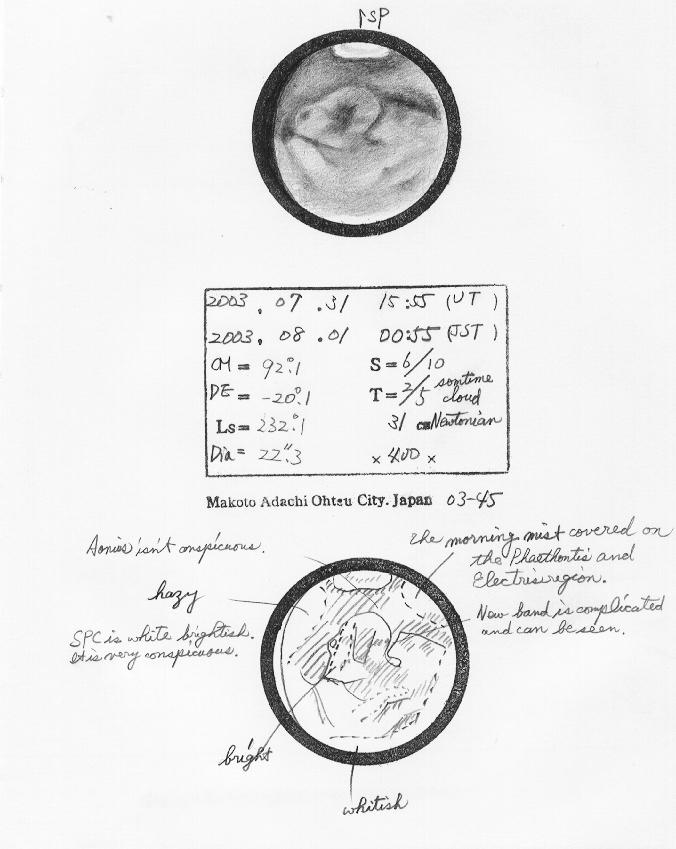 ↑SP
2003. 07. 31 15:55 (UT)
2003. 08. 01 00:55 (JST)
CM = 92°.1 S = 6/10
DE = -20°.1 T = 2/5 somtime cloud
Ls = 232°.1 31 cm Newtonian
Dia = 22".3 × 400 ×
Makoto Adachi Ohtsu City. Japan 03-45
Aonius isn't conspicuous.
The morning mist covered on
the Phaethontis and
Electris region.
hazy
New band is complicated
and can be seen.
SPC is white brightish.
It is very conspicuous.
bright
whitish